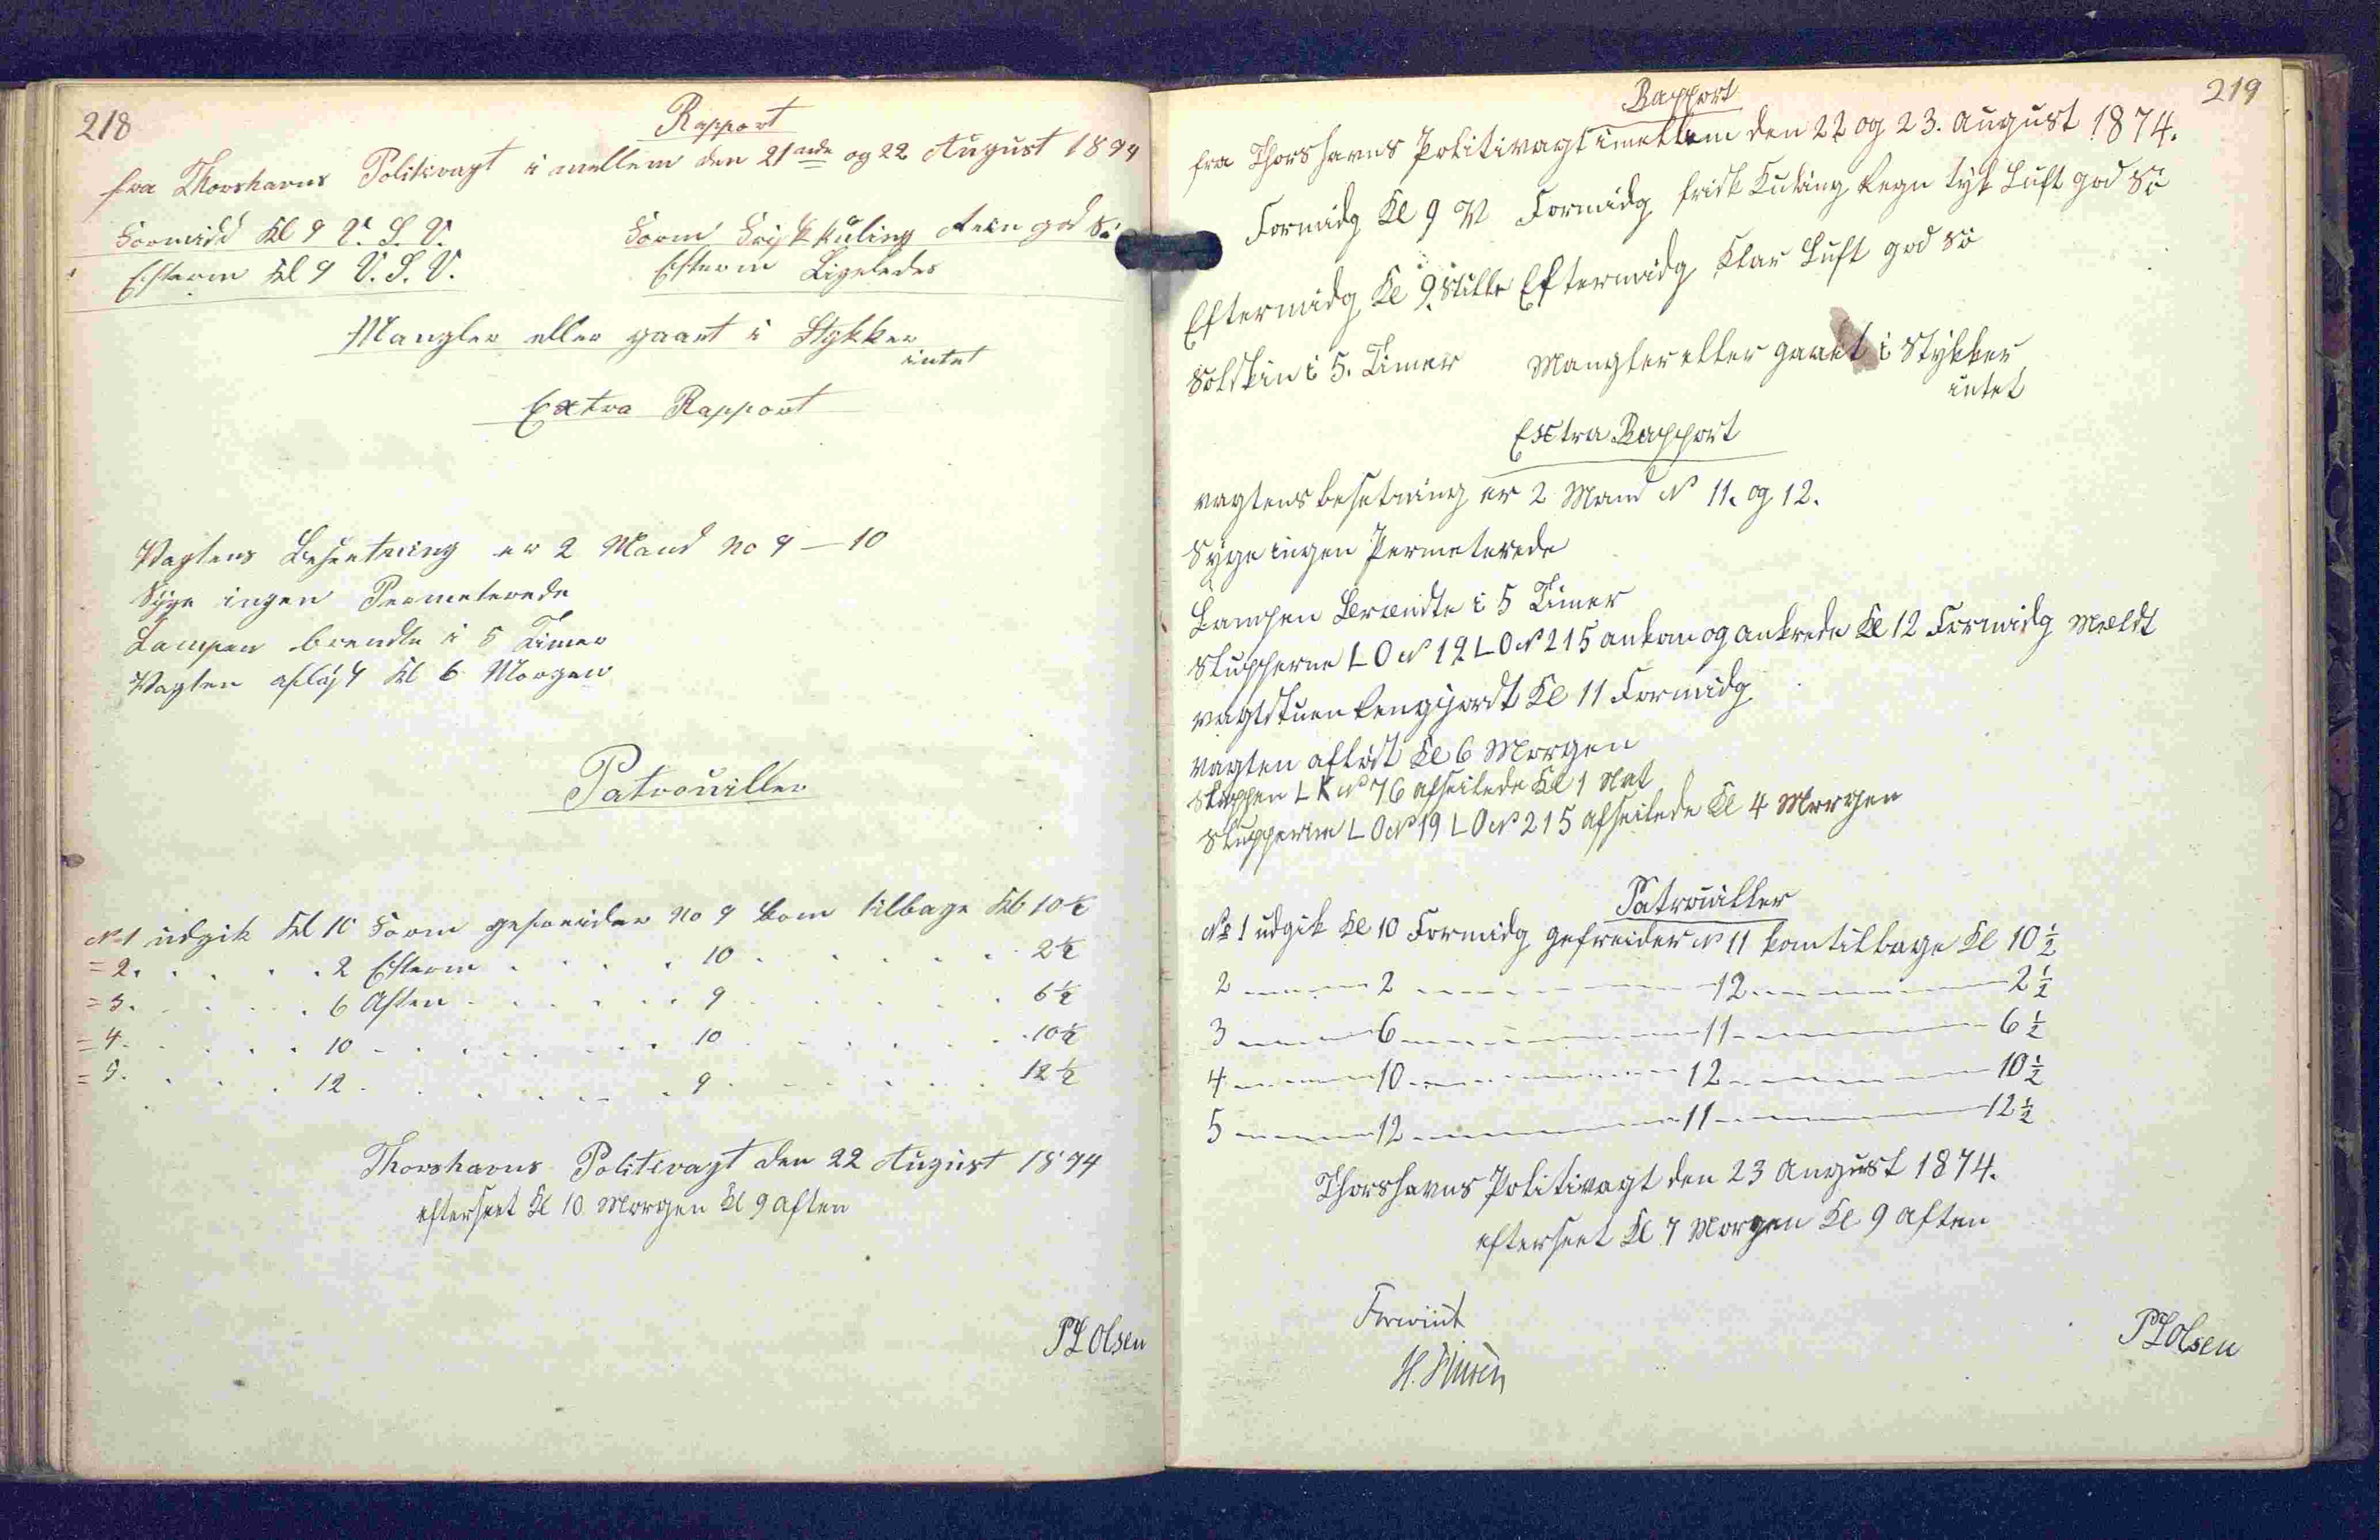 218
Rapport
fra Thorshavns Politivagt i mellem den 21ande og 22 August 1874
Formidd Kl 9 V. S. V. Form Frisk Kuling Rein god Sö
Efterm Kl 9 V. S. V. Efterm Ligeledes
Mangler eller gaaet i Stykker
intet
Extra Rapport
Vagtens Besetning er 2 Mand No 9 — 10
Syge ingen Permeterede
Lampen brendte i 5 Timer
Vagten afløst Kl 6 Morgen
Patrouiller
No 1 udgik Kl 10 Form gefreider No 9 kom tilbage Kl 10 ½
= 2. . . . . . 2 Efterm . . . . 10 . . . . . . 2 ½
= 3. . . . . . 6 Aften . . . . . 9 . . . . . . 6 ½
= 4. . . . . . 10 . . . . . . . 10 . . . . . . 10 ½
= 5. . . . . . 12 . . . . . . . 9 . . . . . . 12 ½
Thorshavns Politivagt den 22 August 1874
efterseet Kl 10 Morgen Kl 9 Aften
PL Olsen
219
Rapport
fra Thorshavns Politivagt imellem den 22 og 23. August 1874.
Formidg Kl 9 V Formidg frisk Kuling Regn tyk Luft god Sö
Eftermidg Kl 9. Stille Eftermidg Klar Luft god Sö
Solskin i 5. Timer Mangler eller gaaet i Stykker
intet
Extra Rapport
Vagtens besetning er 2 Mand No 11. og 12.
Syge ingen Permeterede
Lampen Brændte i 5 Timer
Slupperne L O No 19 L O No 215 ankom og ankrede Kl 12 Formidg Meldt
Vagtstuen Rengjordt Kl 11 Formidg
Vagten afløst Kl 6 Morgen
Sluppen L K No 76 afseilede Kl 1 Nat
Slupperne L O No 19 L O No 215 afseilede Kl 4 Morgen
Patrouiller
No 1 udgik Kl 10 Formidg gefreider No 11 kom tilbage Kl 10 ½
2 ——— 2 ——— 12 ——— 2 ½
3 ——— 6 ——— 11 ——— 6 ½
4 ——— 10 ——— 12 ——— 10 ½
5 ——— 12 ——— 11 ——— 12 ½
Thorshavns Politivagt den 23 August 1874.
efterseet Kl 7 Morgen Kl 9 Aften
PL Olsen